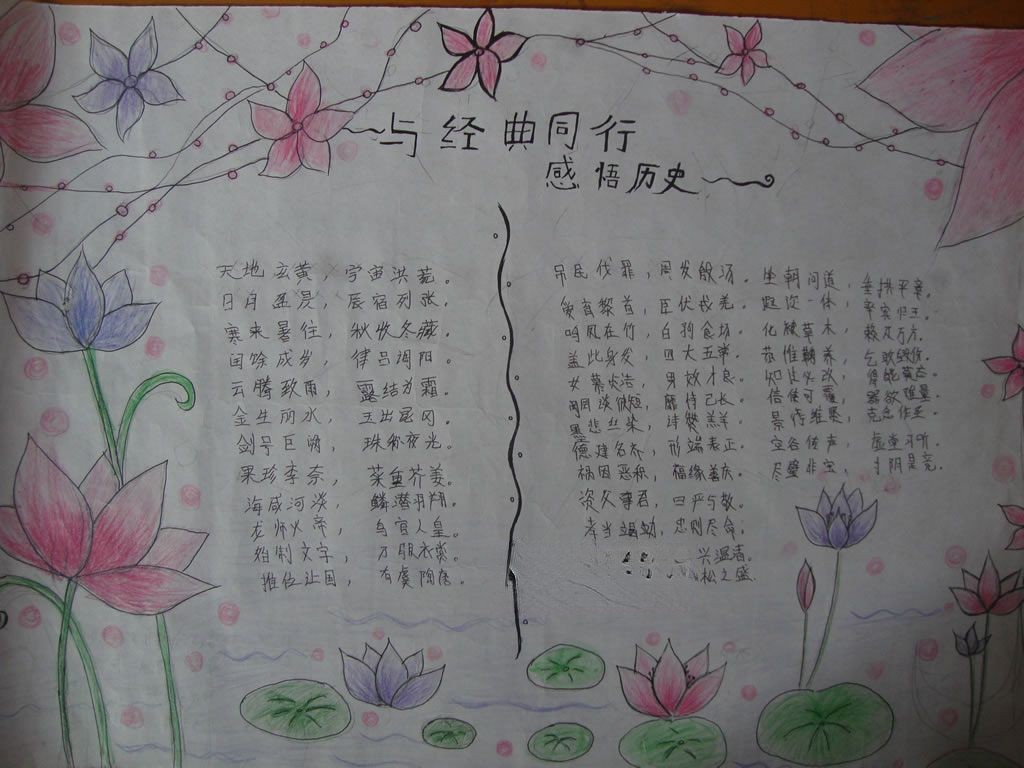 与经典同行
感悟历史
天地玄黄，宇宙洪荒。
日月盈昃，辰宿列张。
寒来暑往，秋收冬藏。
闰馀成岁，律吕调阳。
云腾致雨，露结为霜。
金生丽水，玉出昆冈。
剑号巨阙，珠称夜光。
果珍李奈，菜重芥姜。
海咸河淡，鳞潜羽翔。
龙师火帝，鸟官人皇。
始制文字，乃服衣裳。
推位让国，有虞陶唐。
吊民伐罪，周发殷汤。坐朝问道，垂拱平章。
爱育黎首，臣伏戎羌。遐迩一体，率宾归王。
鸣凤在竹，白驹食场。化被草木，赖及万方。
盖此身发，四大五常。恭惟鞠养，岂敢毁伤。
女慕贞洁，男效才良。知过必改，得能莫忘。
罔谈彼短，靡恃己长。信使可覆，器欲难量。
墨悲丝染，诗赞羔羊。景行维贤，克念作圣。
德建名立，形端表正。空谷传声，虚堂习听。
祸因恶积，福缘善庆。尺璧非宝，寸阴是竞。
资父事君，曰严与敬。
孝当竭力，忠则尽命；
兴温清。
松之盛.